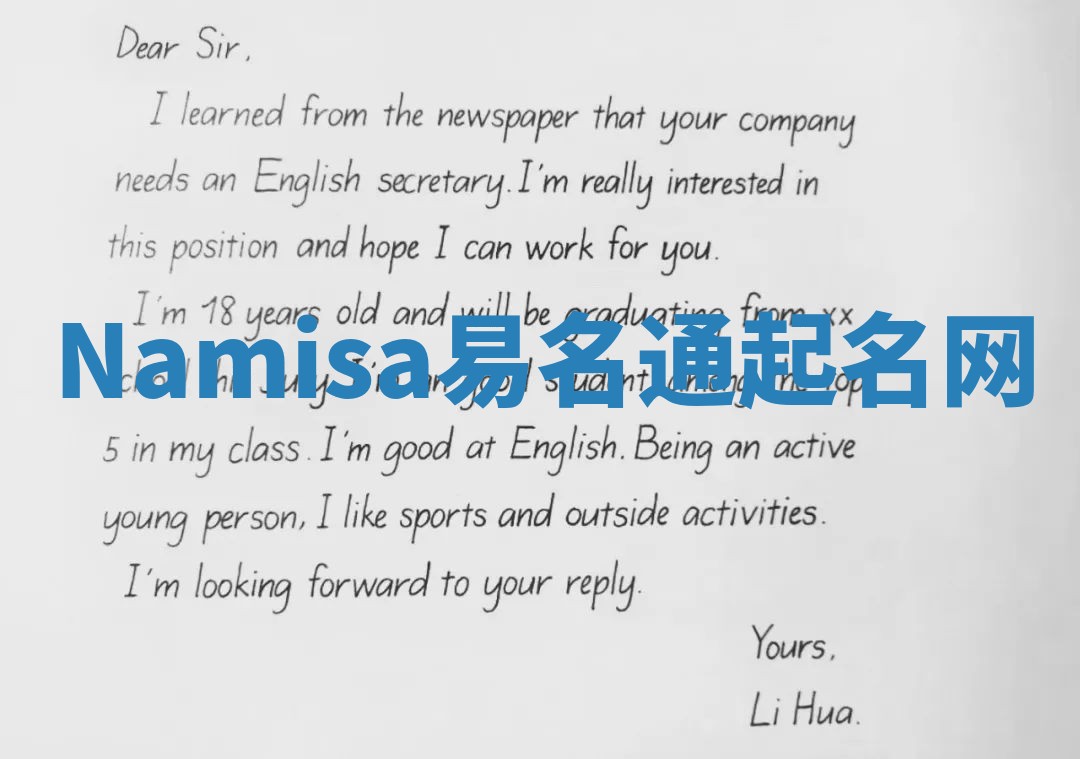 Dear Sir,
I learned from the newspaper that your company
needs an English secretary. I'm really interested in
this position and hope I can work for you.
I'm 18 years old and will be graduating from xx
Namisa易名通起名网
July. I'm student, among the top
5 in my class. I'm good at English. Being an active
young person, I like sports and outside activities.
I'm looking forward to your reply.
Yours,
Li Hua.